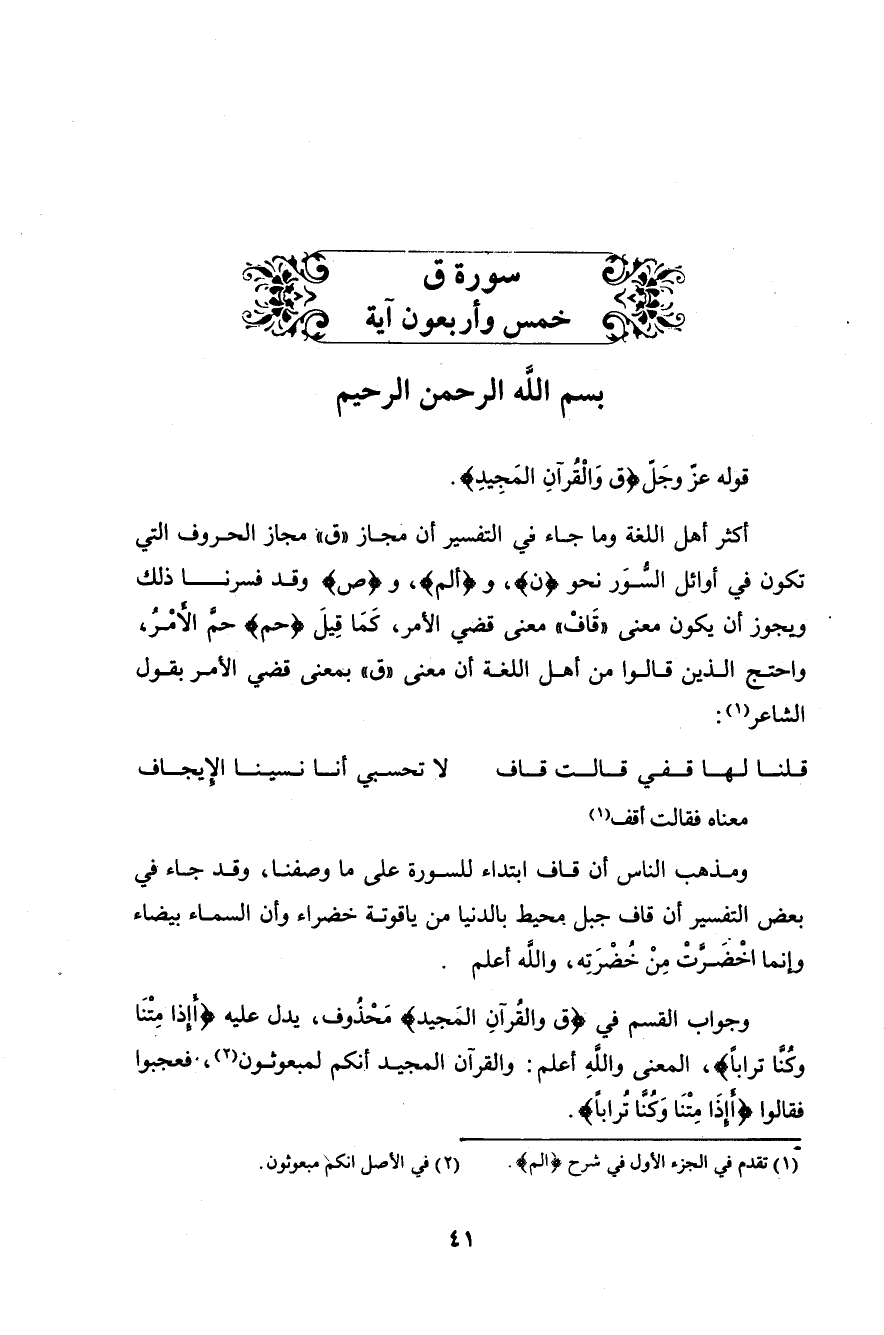 سورة ق
خمس وأربعون آية
بسم اللَّه الرحمن الرحيم
قوله عزّ وجَلّ ﴿ق وَالْقُرآنِ المَجِيدِ﴾.
أكثر أهل اللغة وما جاء في التفسير أن مجاز «ق» مجاز الحروف التي
تكون في أوائل السُّوَر نحو ﴿ن﴾، و ﴿ألم﴾، و ﴿ص﴾ وقد فسرنا ذلك
ويجوز أن يكون معنى «قَافْ» معنى قضي الأمر، كَمَا قِيلَ ﴿حم﴾ حمَّ الأَمْرُ،
واحتج الذين قالوا من أهل اللغة أن معنى «ق» بمعنى قضي الأمر بقول
الشاعر(١):
قلنا لها قفي قالت قاف لا تحسبي أنا نسينا الإيجاف
معناه فقالت أقف(١)
ومذهب الناس أن قاف ابتداء للسورة على ما وصفنا، وقد جاء في
بعض التفسير أن قاف جبل محيط بالدنيا من ياقوتة خضراء وأن السماء بيضاء
وإنما اخْضَرَّتْ مِنْ خُضْرَتِه، واللَّه أعلم .
وجواب القسم في ﴿ق والقُرآنِ المَجيد﴾ مَحْذُوف، يدل عليه ﴿أَإِذا مِتْنَا
وكُنَّا تراباً﴾، المعنى واللَّه أعلم: والقرآن المجيد أنكم لمبعوثون(٢)، فعجبوا
فقالوا ﴿أَإِذَا مِتْنَا وَكُنَّا تُراباً﴾.
(١) تقدم في الجزء الأول في شرح ﴿الم﴾. (٢) في الأصل انكم مبعوثون.
٤١